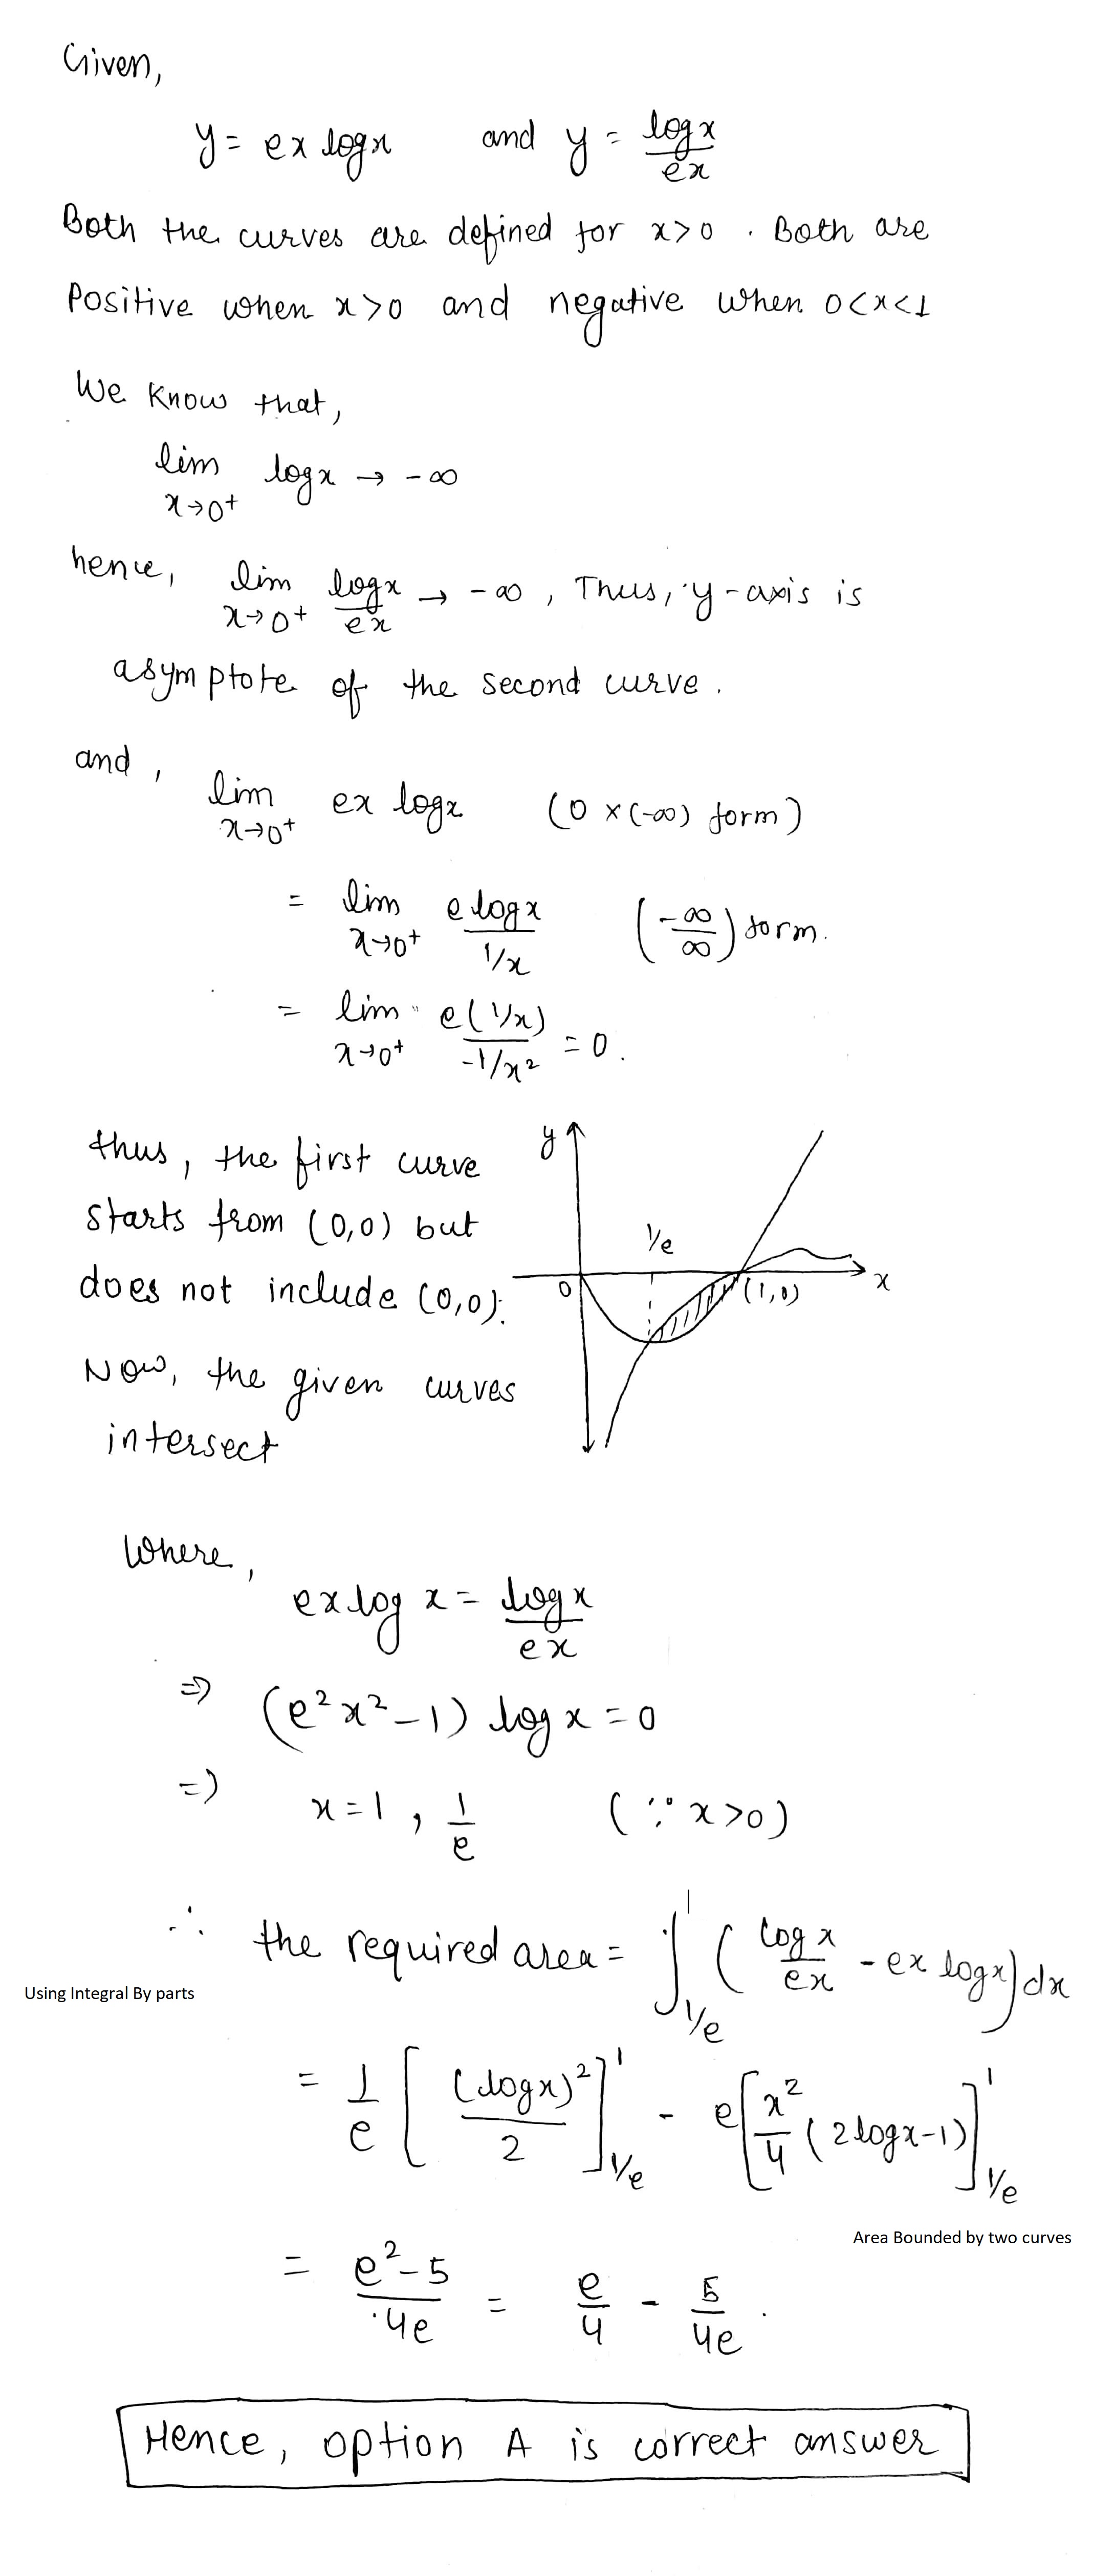 Given,
y = ex logx and y = logx/ex
Both the curves are defined for x>0 . Both are
Positive when x>0 and negative when 0<x<1
We know that,
lim x→0⁺ logx → -∞
hence, lim x→0⁺ logx/ex → -∞ , Thus, y-axis is
asymptote of the second curve.
and , lim x→0⁺ ex logx (0 × (-∞) form)
= lim x→0⁺ e logx / 1/x (-∞/∞) form.
= lim x→0⁺ e(1/x) / -1/x² = 0.
thus, the first curve
starts from (0,0) but
does not include (0,0).
y
1/e
0
(1,0)
x
Now, the given curves
intersect
Where,
ex log x = log x/ex
⇒ (e²x²-1) log x = 0
⇒ x = 1 , 1/e (∵ x>0)
∴ the required area = ∫_{1/e}^{1} (log x/ex - ex logx) dx
Using Integral By parts
= 1/e [(logx)²/2]_{1/e}^{1} - e[x²/4 (2logx-1)]_{1/e}^{1}
Area Bounded by two curves
= e²-5/4e = e/4 - 5/4e .
Hence, option A is correct answer